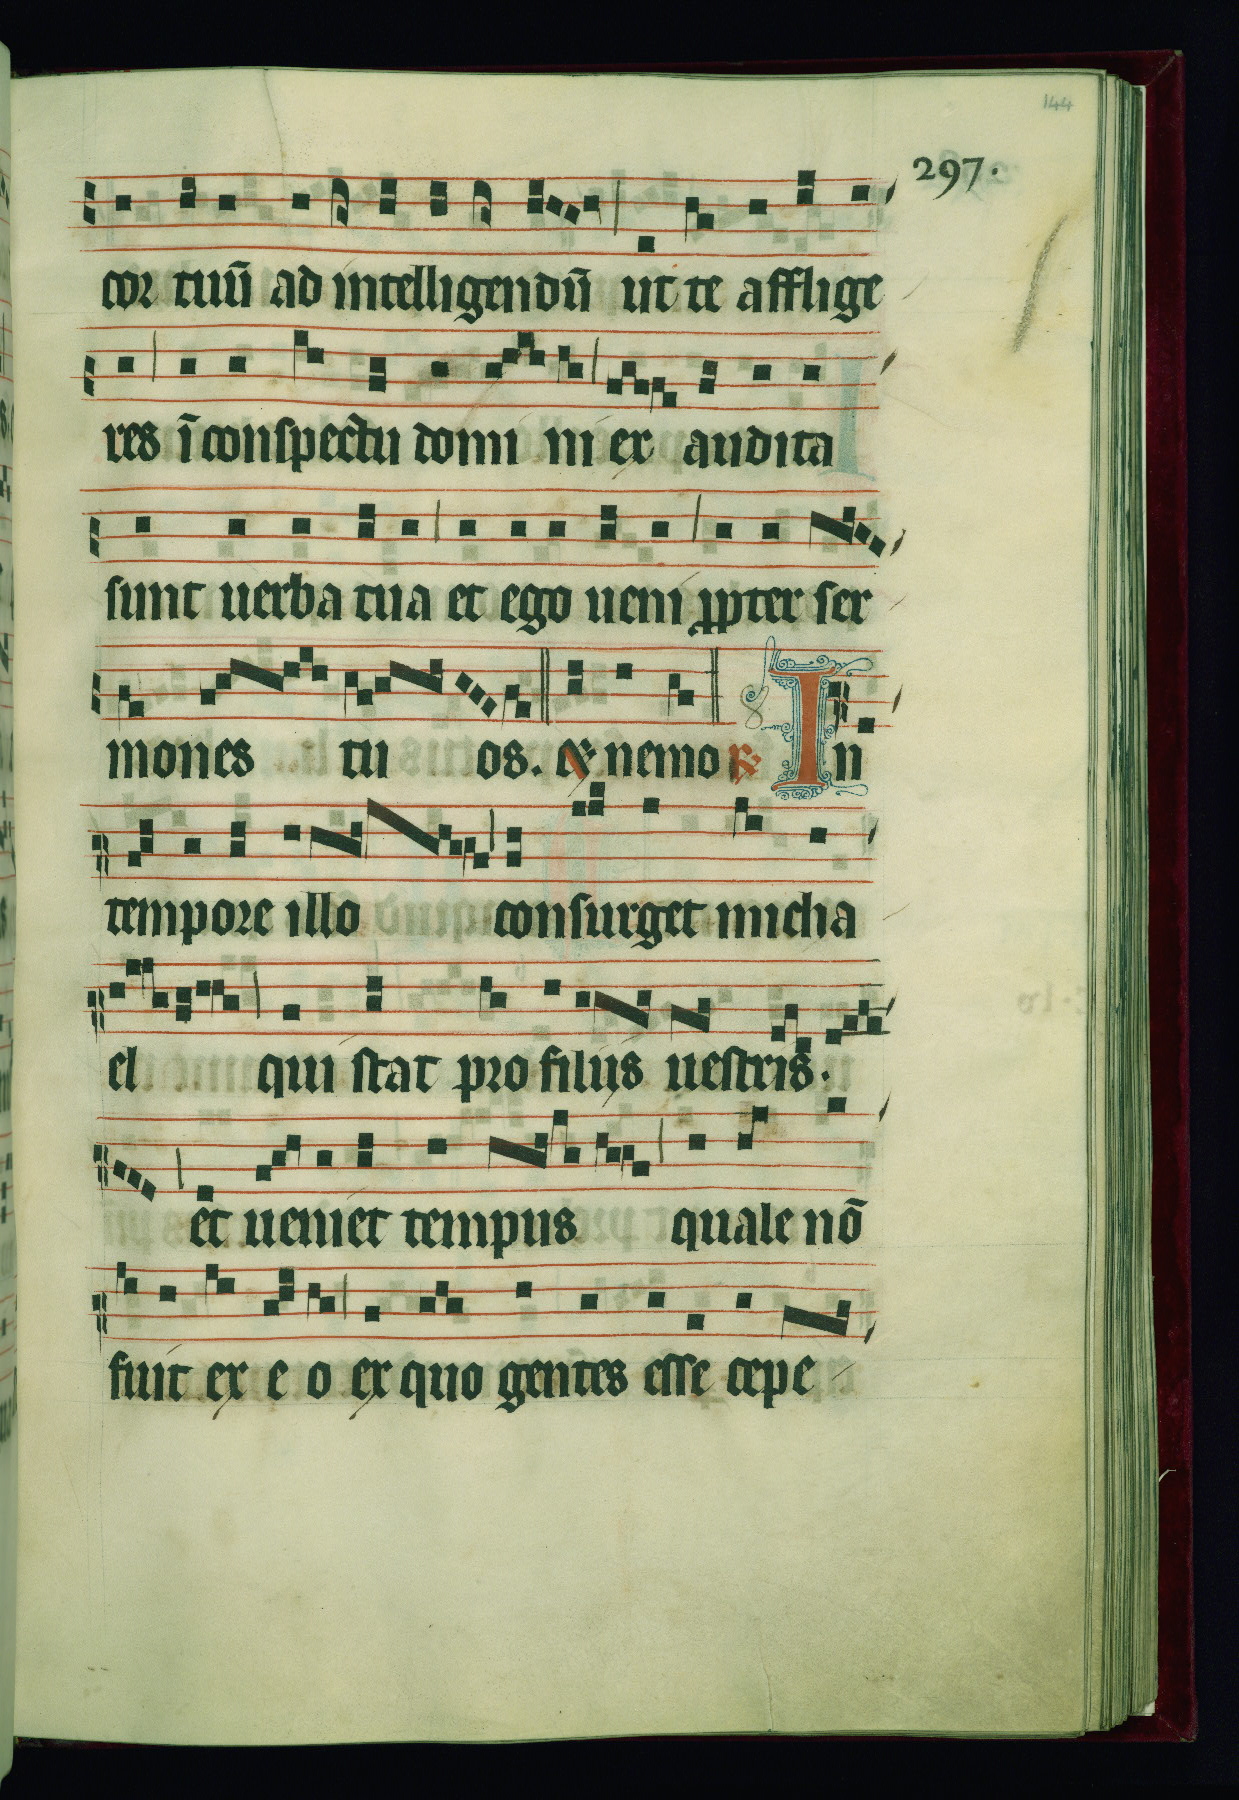 144
297.
cor tuū ad intelligendū ut te afflige
res ī conspectu domi ni ex audita
sunt uerba tua et ego ueni ꝓpter ser
mones tu os. ℟ nemo ℟ In
tempore illo consurget micha
el qui stat pro filijs uestris.
et ueniet tempus quale nō
fuit ex e o ex quo gentes esse cepe